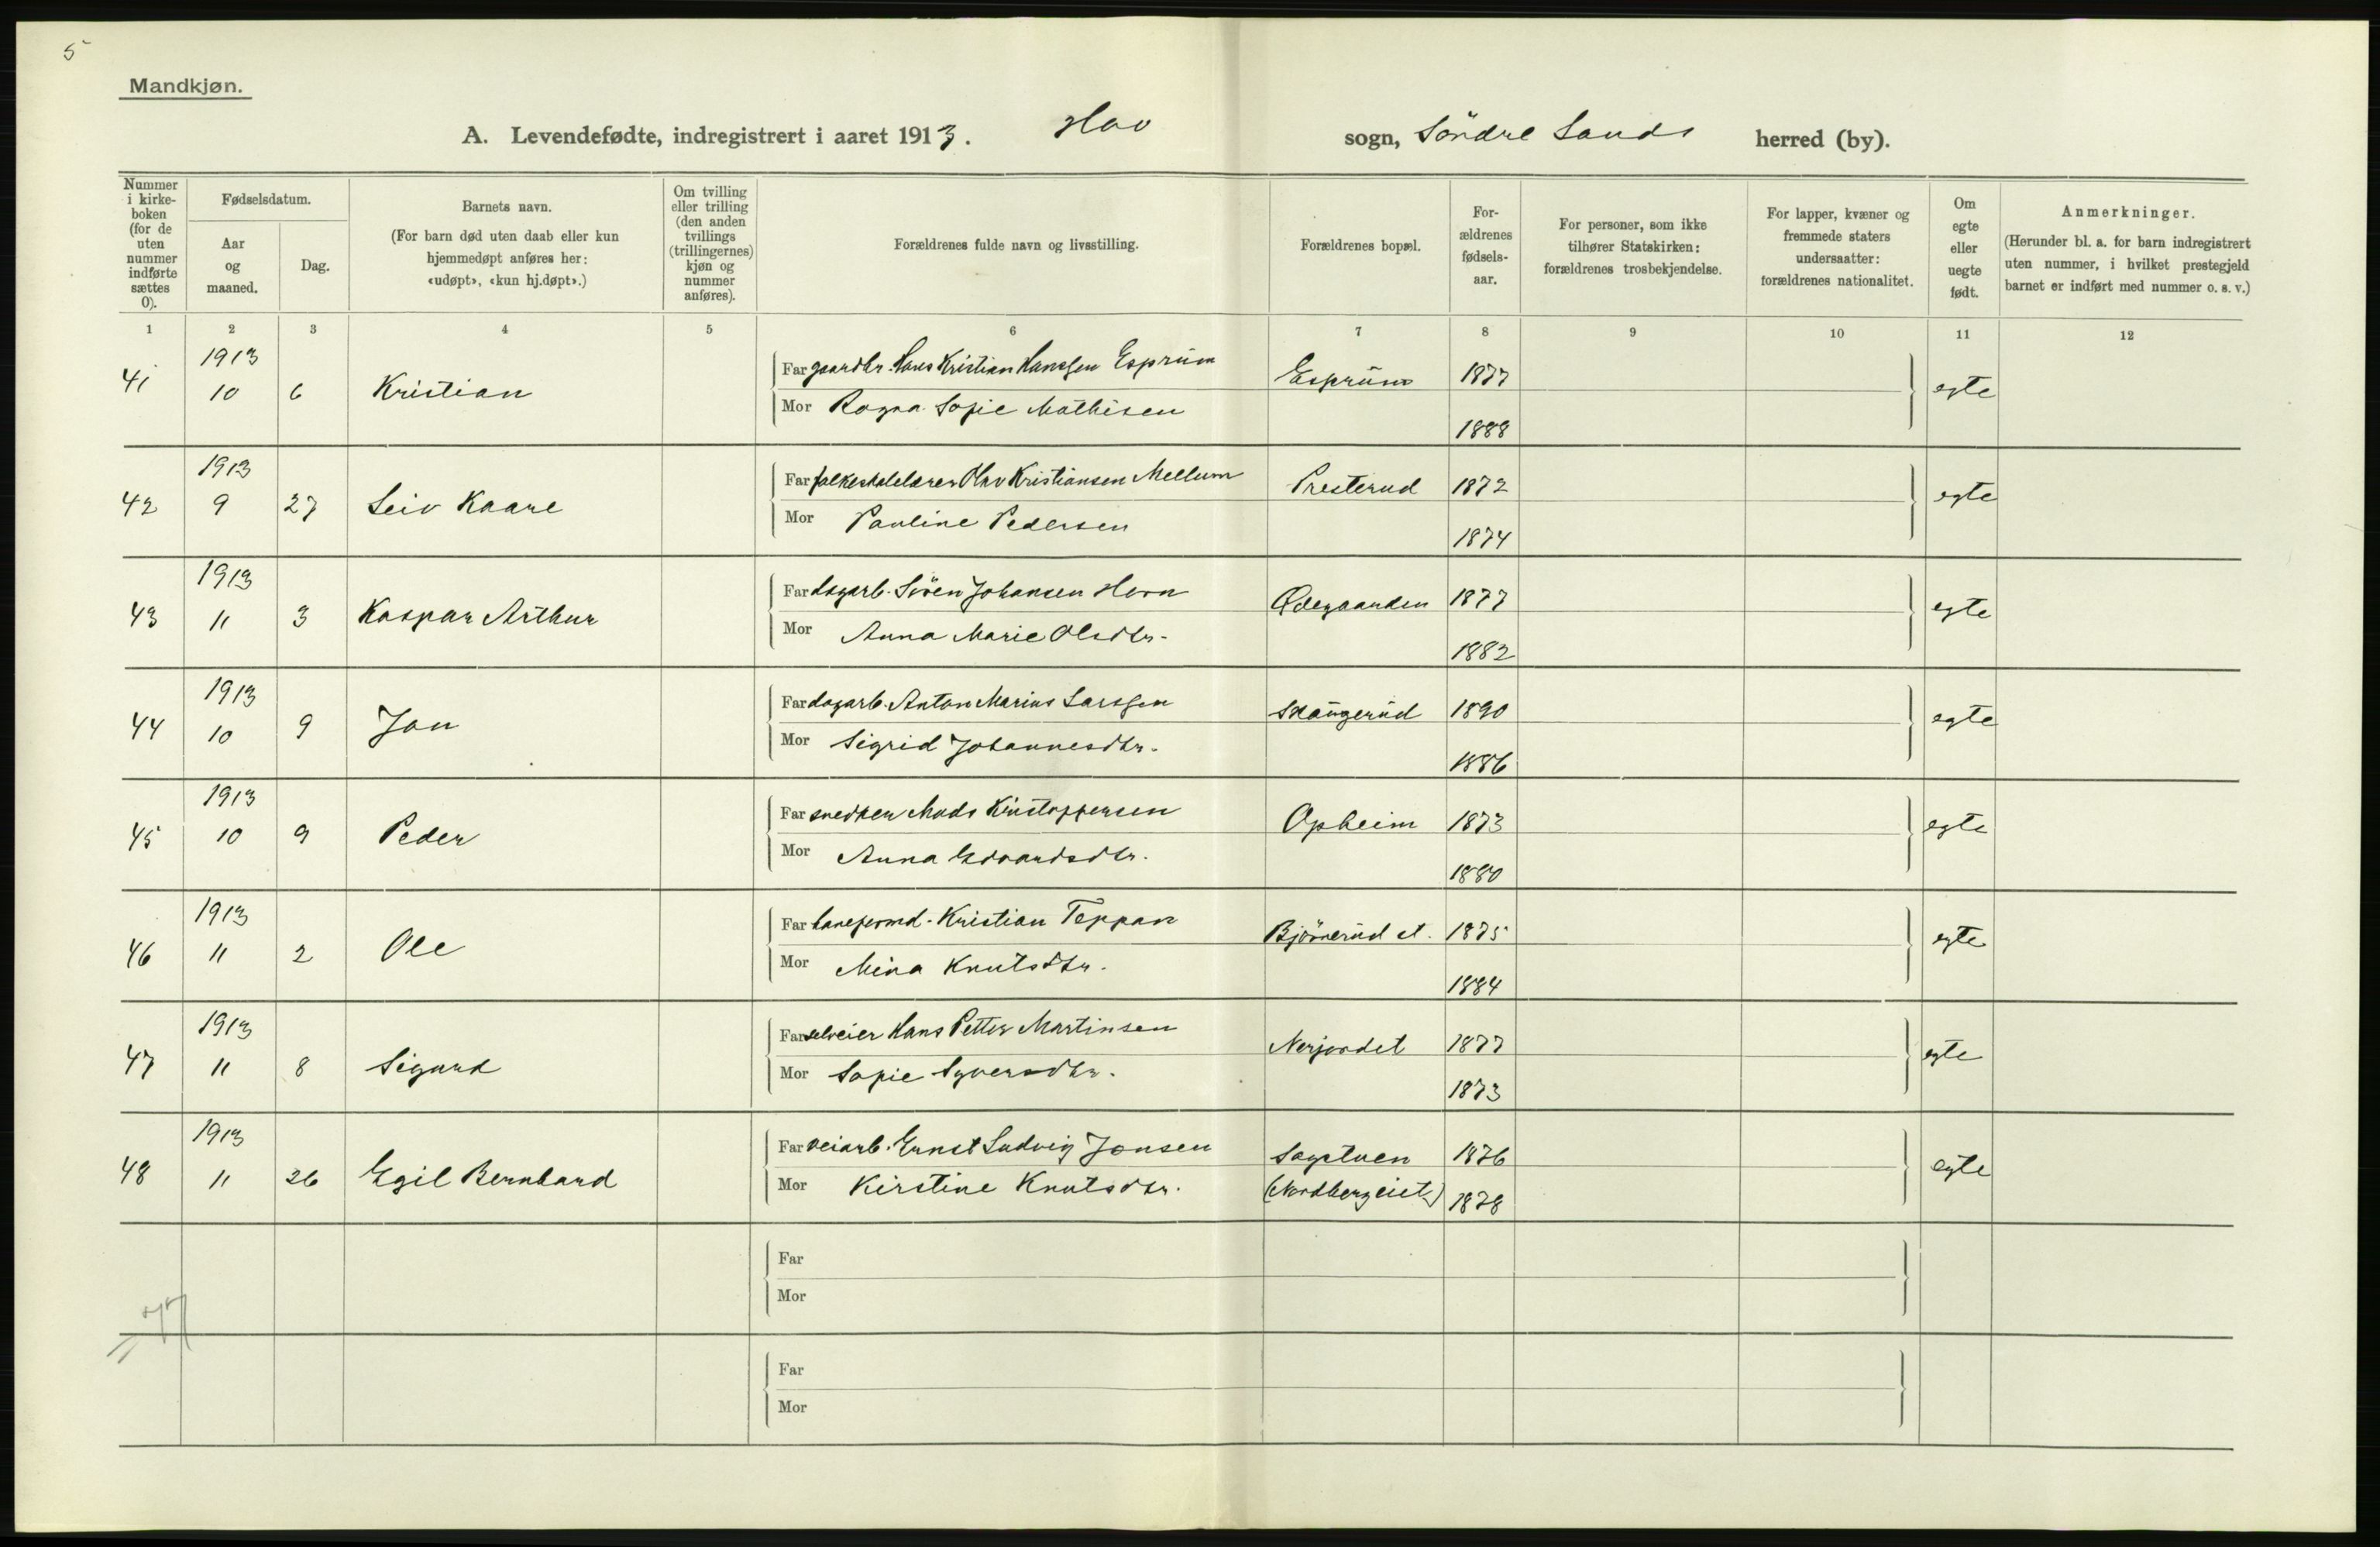 5
Mandkjøn.
A. Levendefødte, indregistrert i aaret 1913. Hov sogn, Söndre Lands herred (by).
Nummer i kirkeboken (for de uten nummer indførte sættes 0).
Fødselsdatum.
Aar og maaned.
Dag.
Barnets navn.
(For barn død uten daab eller kun hjemmedøpt anføres her: «udøpt», «kun hj.døpt».)
Om tvilling eller trilling (den anden tvillings (trillingernes) kjøn og nummer anføres).
Forældrenes fulde navn og livsstilling.
Forældrenes bopæl.
Forældrenes fødselsaar.
For personer, som ikke tilhører Statskirken: forældrenes trosbekjendelse.
For lapper, kvæner og fremmede staters undersaatter: forældrenes nationalitet.
Om egte eller uegte født.
Anmerkninger.
(Herunder bl. a. for barn indregistrert uten nummer, i hvilket prestegjeld barnet er indført med nummer o. s. v.)
1 2 3 4 5 6 7 8 9 10 11 12
41 1913 10 6 Kristian Far gaardbr. Hans Kristian Hanssen Esprüm Esprüm 1877 egte
Mor Ragna Sofie Mathisen 1888
42 1913 9 27 Leiv Kaare Far folkeskolelærer Olav Kristiansen Mellum Presterud 1872 egte
Mor Pauline Pedersen 1874
43 1913 11 3 Kaspar Arthur Far dagarb. Sören Johansen Horn Ødegaarden 1877 egte
Mor Anna Marie Olsdtr. 1882
44 1913 10 9 Jon Far dagarb. Anton Marius Larssen Skaugerud 1890 egte
Mor Sigrid Johannesdtr. 1886
45 1913 10 9 Peder Far snedker Mads Kristoffersen Opheim 1873 egte
Mor Anna Edvardsdtr. 1880
46 1913 11 2 Ole Far baneformd. Kristian Toppan Bjönerud st. 1875 egte
Mor Mina Knutsdtr. 1884
47 1913 11 8 Sigurd Far selveier Hans Petter Martinsen Nerjordet 1877 egte
Mor Sofie Syversdtr. 1873
48 1913 11 26 Egil Bernhard Far veiarb. Ernst Ludvig Jonsen Sagstuen 1876 egte
Mor Kirstine Knutsdtr. (Nordbergeiet) 1878
Far
Mor
Far
Mor